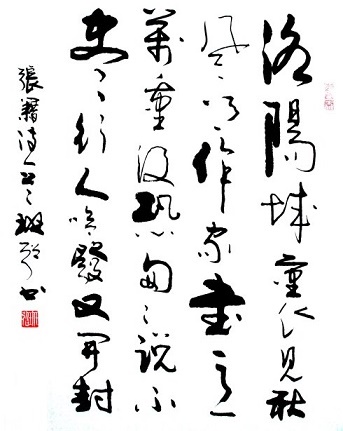 洛陽城裏見秋
風欲作家書意
萬重復恐匆匆說不
盡行人臨發又開封
張籍詩一首 書